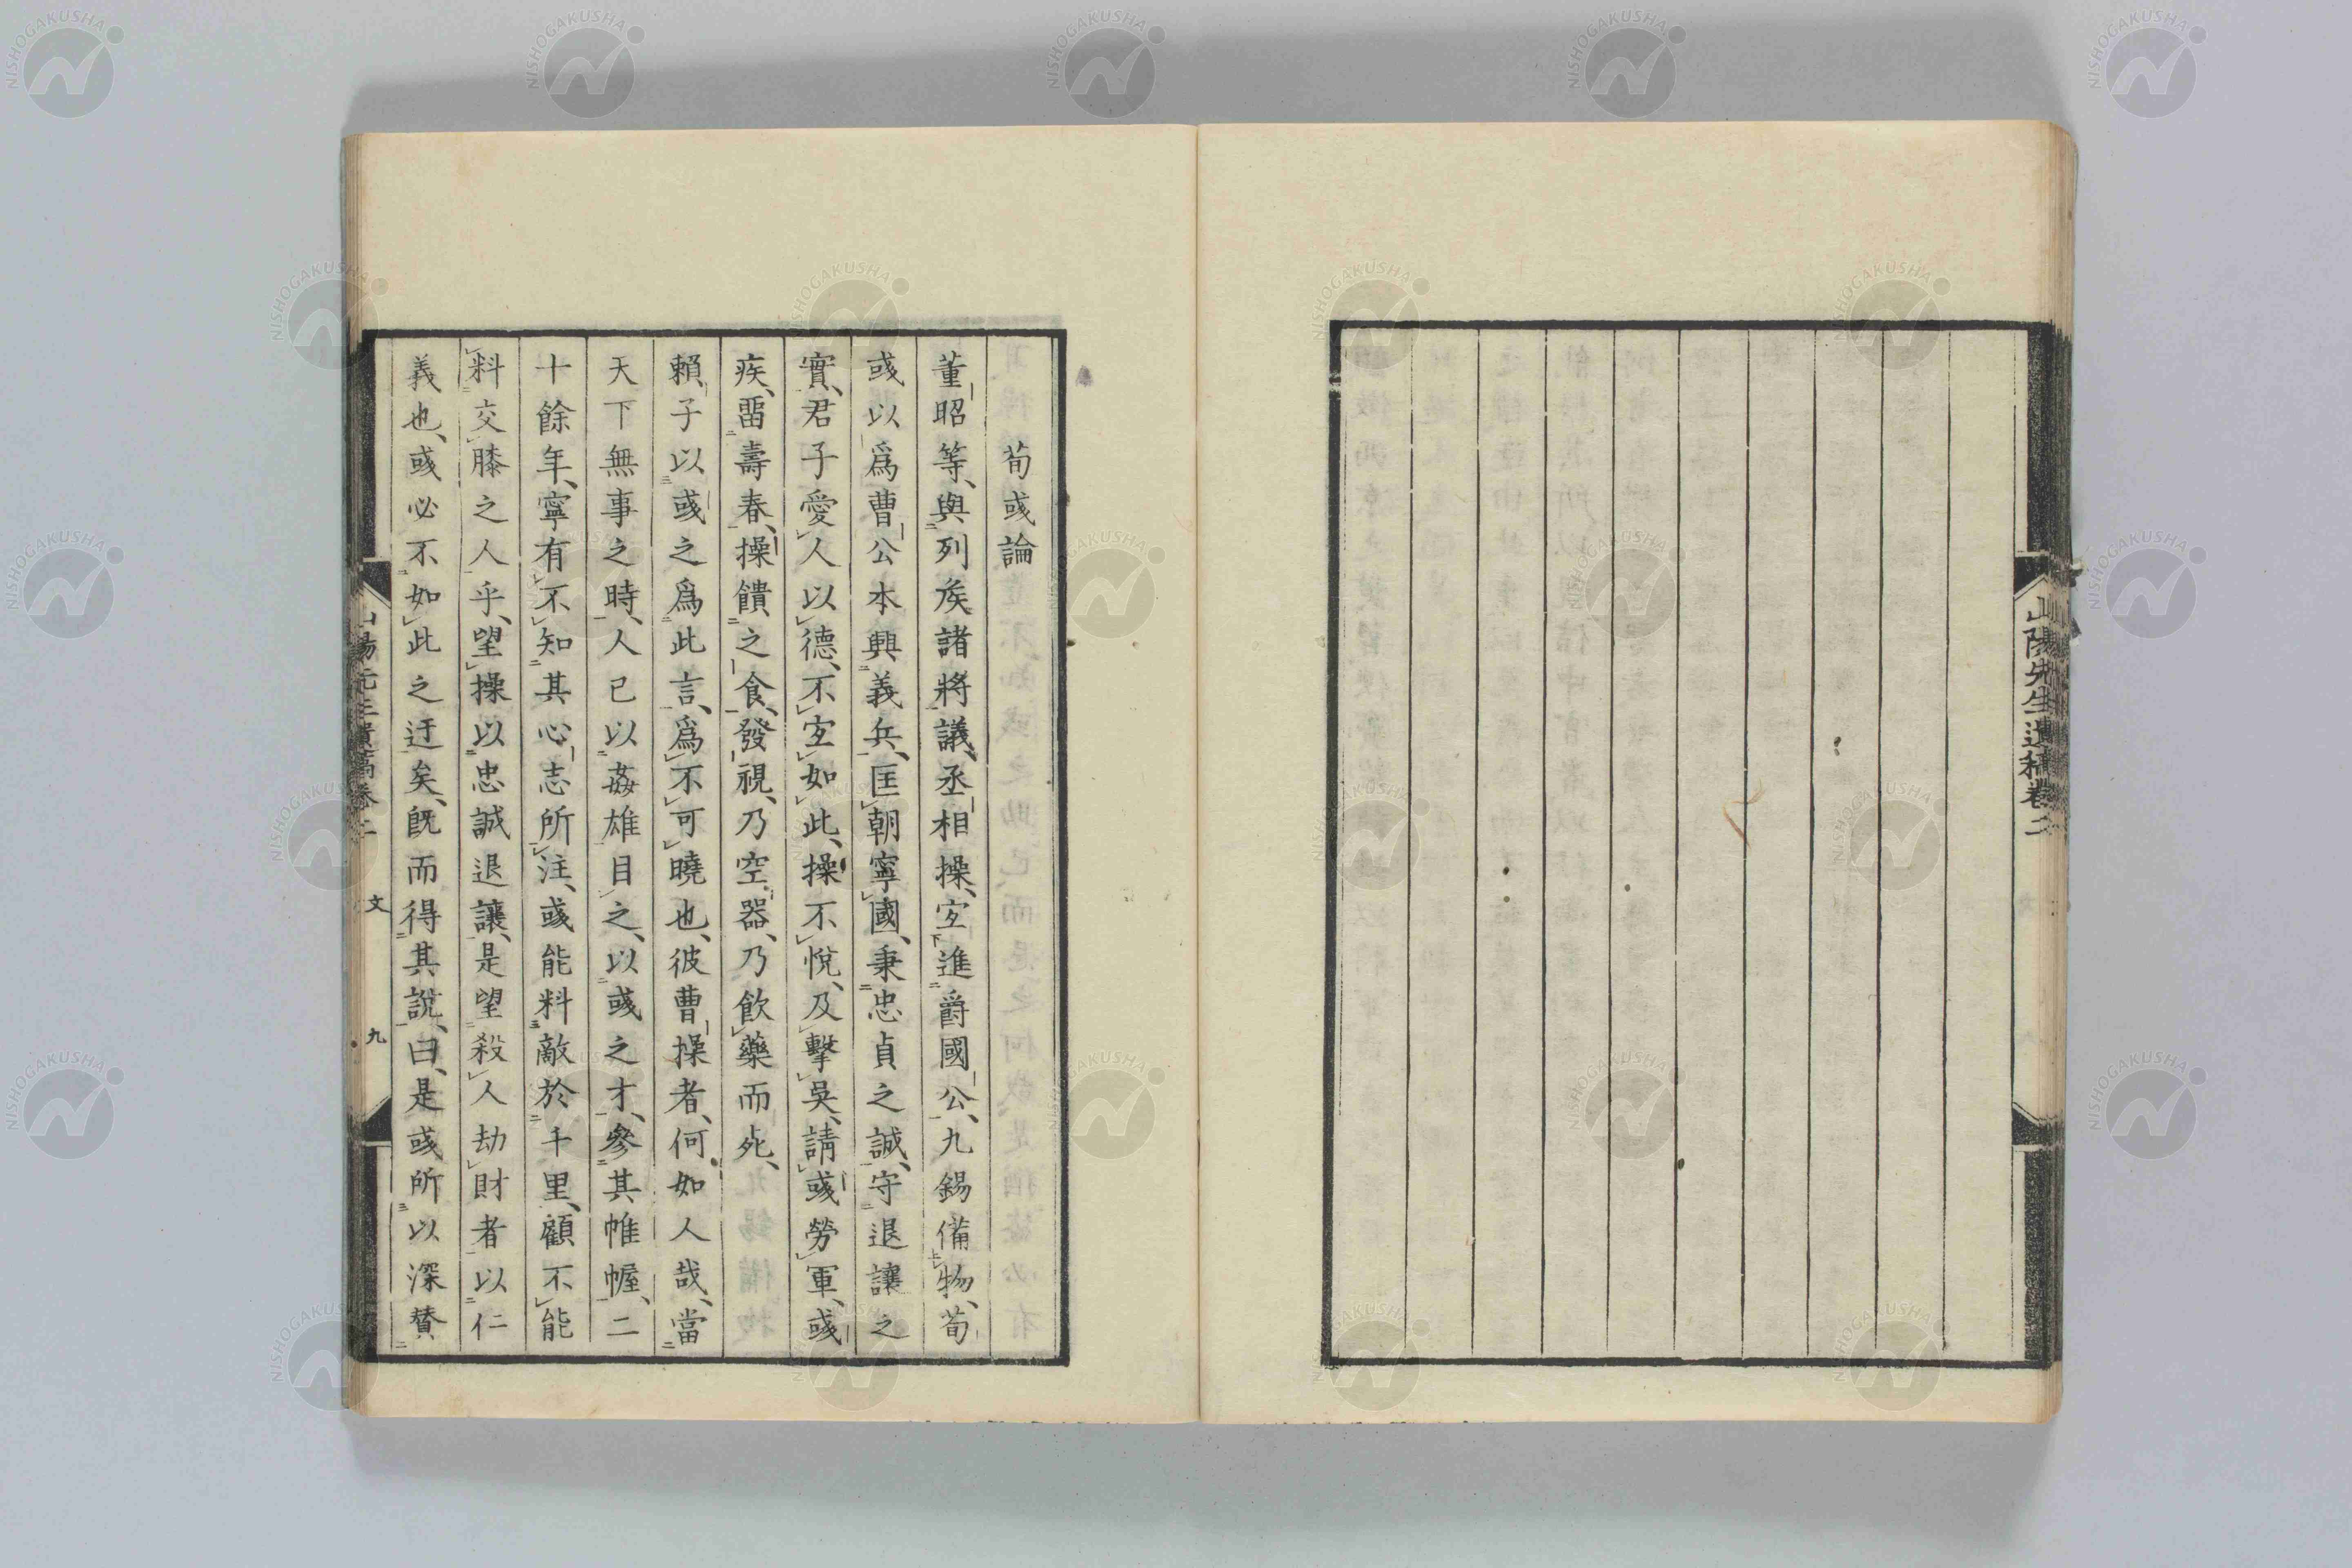 山陽先生遺稿卷二
荀彧論
董昭等、與列矦諸將議、丞相操、宐進爵國公、九錫備物、荀
彧以爲曹公本興義兵、匡朝寧國、秉忠貞之誠、守退讓之
實、君子愛人以德、不宐如此、操不悅、及擊吳、請彧勞軍、彧
疾、畱壽春、操饋之食、發視、乃空器、乃飲藥而死、
賴子以彧之爲此言、爲不可曉也、彼曹操者、何如人哉、當
天下無事之時、人已以姦雄目之、以彧之才、參其帷幄、二
十餘年、寧有不知其心志所注、彧能料敵於千里、顧不能
料交膝之人乎、望操以忠誠退讓、是望殺人劫財者以仁
義也、彧必不如此之迂矣、旣而得其說、曰、是彧所以深贊
山陽先生遺稿卷二 文 九